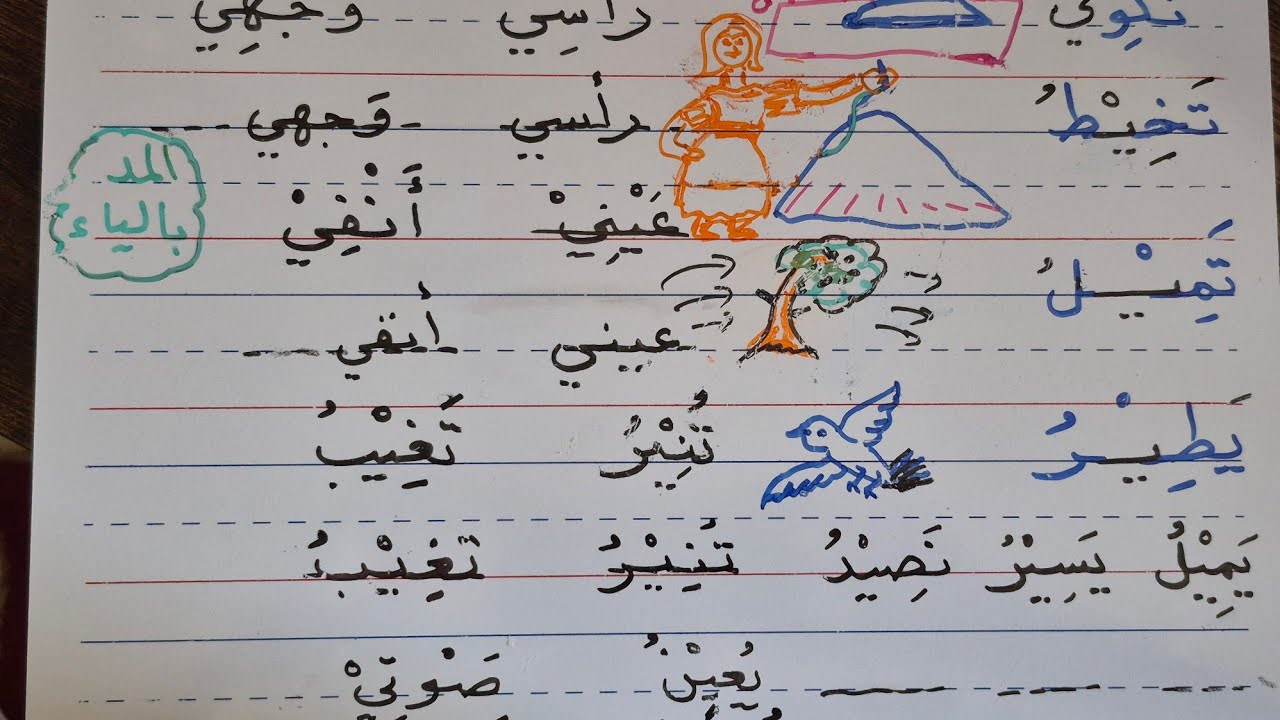 تَكْوِي رَأْسِي وَجْهِي
تَخِيْطُ رأسي وَجهي
المد
بالياء
عَيْنِيْ أَنْفِيْ
تَمِيْلُ
عيني أنفي
يَطِيْرُ تُنِيْرُ تَغِيْبُ
يَمِيْلُ يَسِيْرُ نَصِيْدُ تُنِيْرُ تَغِيْبُ
يُعِيْنُ صَوْتِيْ